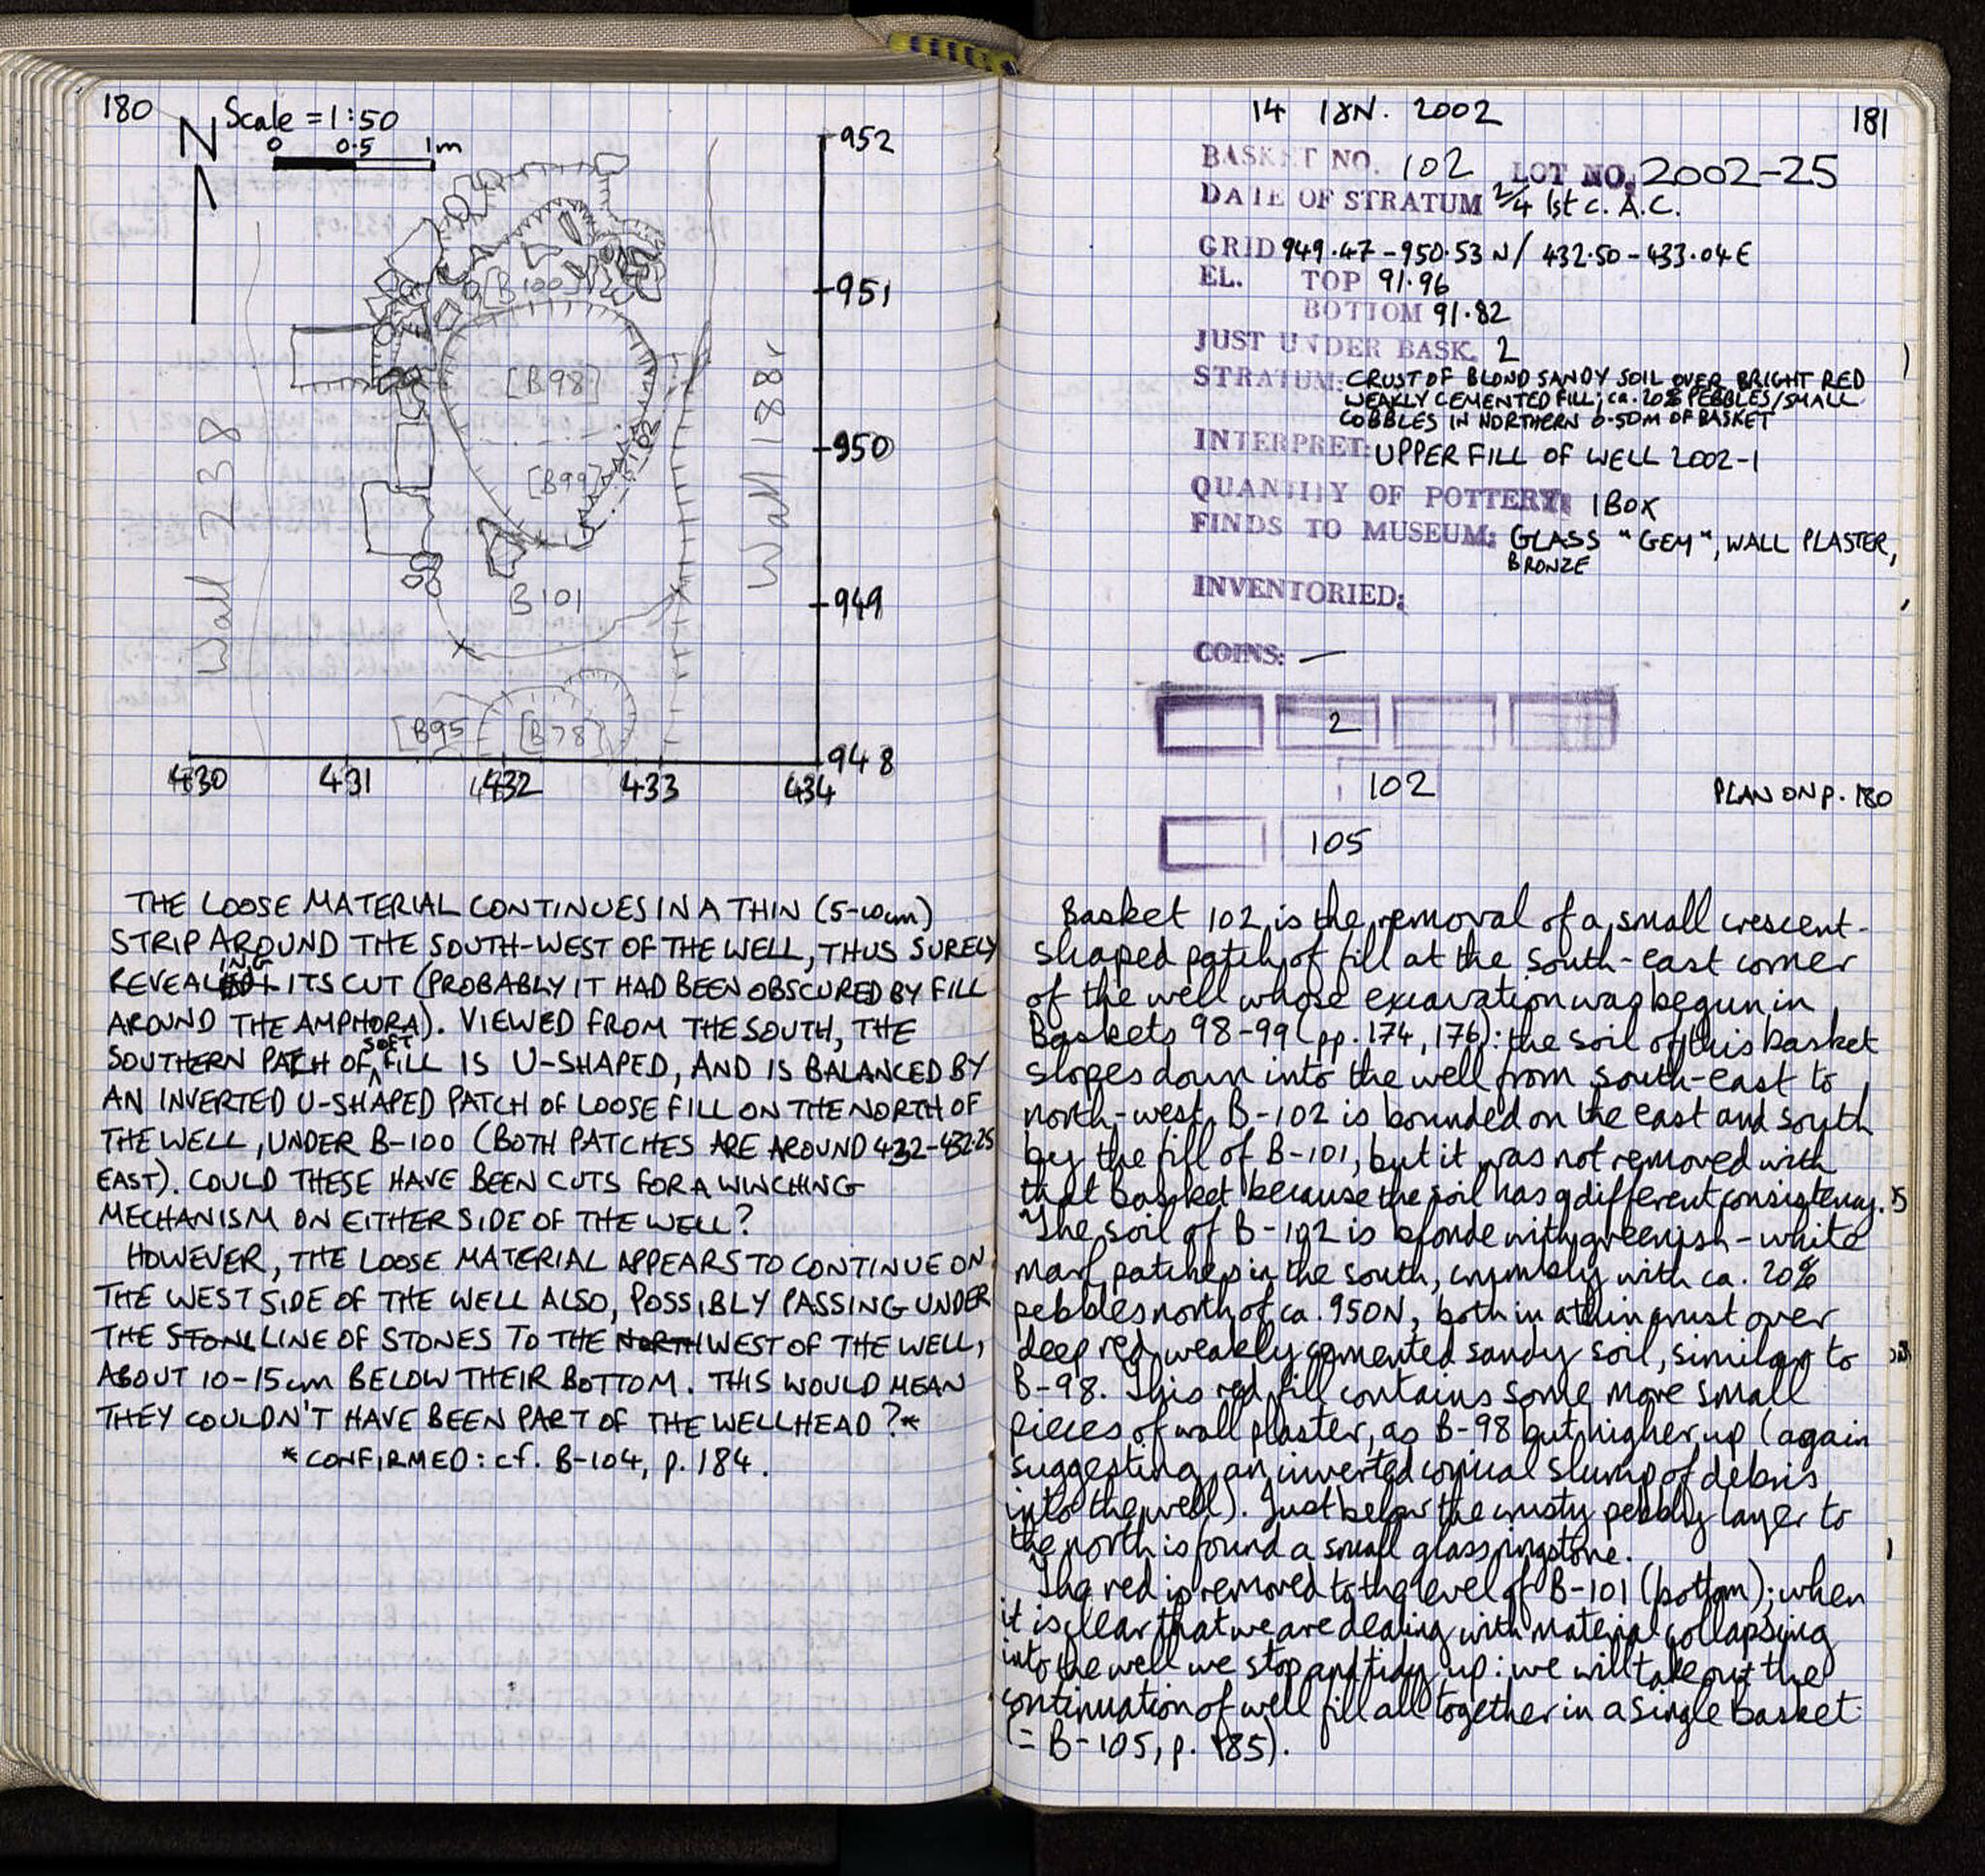 180
N
Scale = 1:50
0 0.5 1m
952
951
950
949
948
430 431 432 433 434
[B100]
[B98]
[B99]
B102
B101
[B95
[B78]
Wall 238
Wall 188r
THE LOOSE MATERIAL CONTINUES IN A THIN (5-10cm)
STRIP AROUND THE SOUTH-WEST OF THE WELL, THUS SURELY
REVEALING ITS CUT (PROBABLY IT HAD BEEN OBSCURED BY FILL
AROUND THE AMPHORA). VIEWED FROM THE SOUTH, THE
SOUTHERN PATCH OF SOFT FILL IS U-SHAPED, AND IS BALANCED BY
AN INVERTED U-SHAPED PATCH OF LOOSE FILL ON THE NORTH OF
THE WELL, UNDER B-100 (BOTH PATCHES ARE AROUND 432-432.25
EAST). COULD THESE HAVE BEEN CUTS FOR A WINCHING
MECHANISM ON EITHER SIDE OF THE WELL?
HOWEVER, THE LOOSE MATERIAL APPEARS TO CONTINUE ON
THE WEST SIDE OF THE WELL ALSO, POSSIBLY PASSING UNDER
THE STONE LINE OF STONES TO THE NORTH WEST OF THE WELL,
ABOUT 10-15cm BELOW THEIR BOTTOM. THIS WOULD MEAN
THEY COULDN'T HAVE BEEN PART OF THE WELLHEAD?*
*CONFIRMED: cf. B-104, p. 184.
14 IUN. 2002
181
BASKET NO. 102 LOT NO. 2002-25
DATE OF STRATUM 2/4 1st c. A.C.
GRID 949.47-950.53 N/ 432.50-433.04 E
EL. TOP 91.96
BOTTOM 91.82
JUST UNDER BASK. 2
STRATUM: CRUST OF BLOND SANDY SOIL OVER BRIGHT RED
WEAKLY CEMENTED FILL; ca. 20% PEBBLES/SMALL
COBBLES IN NORTHERN 0.50m OF BASKET
INTERPRET: UPPER FILL OF WELL 2002-1
QUANTITY OF POTTERY: 1 BOX
FINDS TO MUSEUM: GLASS "GEM", WALL PLASTER,
BRONZE
INVENTORIED:
COINS: —
2
102
PLAN ON p. 180
105
Basket 102 is the removal of a small crescent-
shaped patch of fill at the south-east corner
of the well whose excavation was begun in
Baskets 98-99 (pp. 174, 176): the soil of this basket
slopes down into the well from south-east to
north-west. B-102 is bounded on the east and south
by the fill of B-101, but it was not removed with
that basket because the soil has a different consistency.
The soil of B-102 is blonde with greenish-white
marl patches in the south, crumbly with ca. 20%
pebbles north of ca. 950N, both in a thin crust over
deep red weakly cemented sandy soil, similar to
B-98. This red fill contains some more small
pieces of wall plaster, as B-98 but higher up (again
suggesting an inverted conical slump of debris
into the well). Just below the crusty pebbly layer to
the north is found a small glass ringstone.
The red is removed to the level of B-101 (bottom); when
it is clear that we are dealing with material collapsing
into the well we stop and tidy up: we will take out the
continuation of well fill all together in a single basket
(= B-105, p. 185).